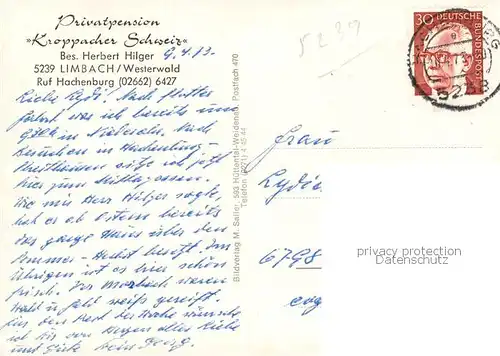 Privatpension
»Kroppacher Schweiz«
Bes. Herbert Hilger
5239 LIMBACH/Westerwald
Ruf Hachenburg (02662) 6427
9.4.73.
Liebe Lydi! Nach flotter
Fahrt was ich bereits um
in
in Hachenburg-
sitze ich jetzt
hier zum Mittagessen.
Wie mir Herr Hilger sagte,
hat er ab Ostern bereits
das ganze Haus über den
Sommer - Herbst besetzt. Im
Übrigen ist es hier schön
frisch. Der
Wald u. Feld weiß gereift.
Für den Rest der Woche wünsche
ich Dir von Herzen alles Liebe
und Gute Dein Georg.
Bildverlag M. Sailer, 593 Hüttental-Weidenau, Postfach 470
Telefon (0271) 4 45 44
5239
30 DEUTSCHE BUNDESPOST
5238
Frau
Lydia
6798
privacy protection
Datenschutz